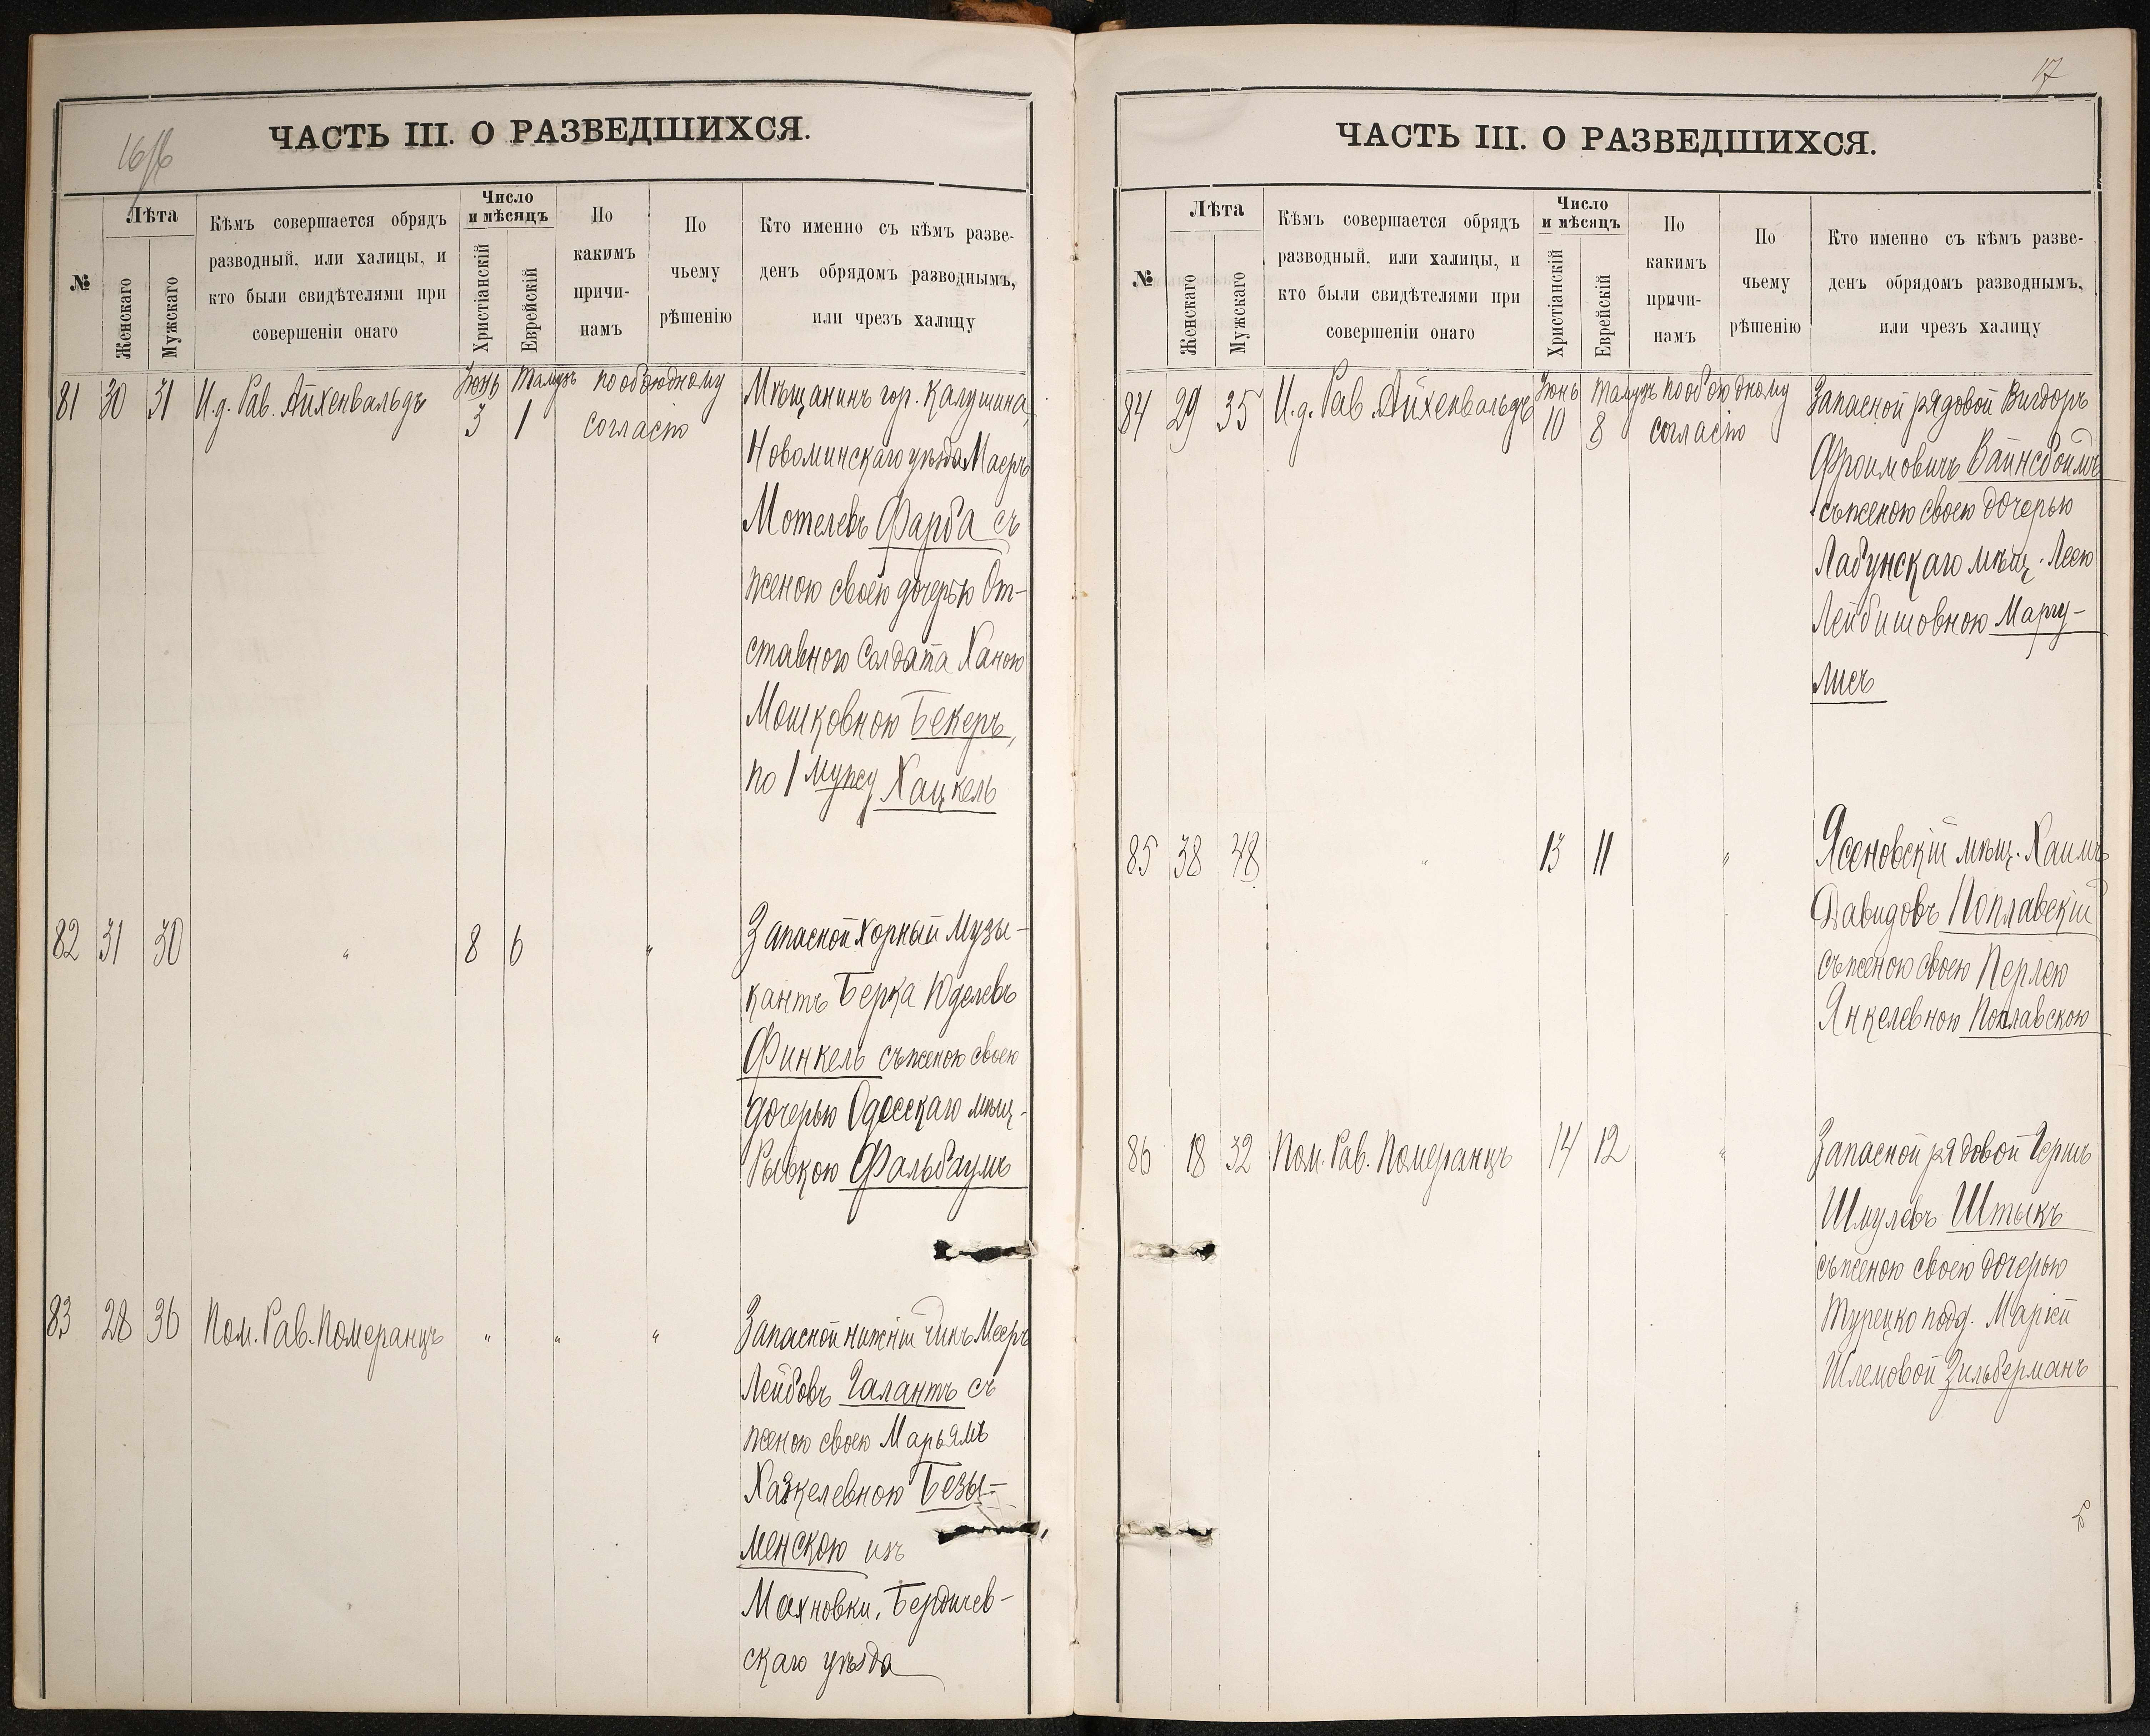 16/16
ЧАСТЬ III. О РАЗВЕДШИХСЯ.
№
Лѣта
Женскаго
Мужскаго
Кѣмъ совершается обрядъ
разводный, или халицы, и
кто были свидѣтелями при
совершеніи онаго
Число
и мѣсяцъ
Христіанскій
Еврейскій
По
какимъ
причи-
намъ
По
чьему
рѣшенію
Кто именно съ кѣмъ разве-
денъ обрядомъ разводнымъ,
или чрезъ халицу
81 30 31 И.д. Рав. Айхенвальдъ Іюнь 3 Тамузъ 1 по обоюдному
согласію
Мѣщанинъ гор. Калушина,
Новоминскаго уѣзда Маеръ
Мотелевъ Фарба съ
женою своею дочерью От-
ставного Солдата Ханою
Мошковною Бекеръ,
по 1 мужу Хацкель
82 31 30 " 8 6 "
Запасной хорный музы-
кантъ Берка Юделевъ
Финкель съ женою своею
дочерью Одесскаго мѣщ.
Рывкою Фальбаумъ
83 28 36 Пом. Рав. Померанцъ " " "
Запасной нижній чинъ Мееръ
Лейбовъ Галантъ съ
женою своею Марьямъ
Хазкелевною Безы-
менскою изъ
Махновки, Бердичев-
скаго уѣзда
17
ЧАСТЬ III. О РАЗВЕДШИХСЯ.
№
Лѣта
Женскаго
Мужскаго
Кѣмъ совершается обрядъ
разводный, или халицы, и
кто были свидѣтелями при
совершеніи онаго
Число
и мѣсяцъ
Христіанскій
Еврейскій
По
какимъ
причи-
намъ
По
чьему
рѣшенію
Кто именно съ кѣмъ разве-
денъ обрядомъ разводнымъ,
или чрезъ халицу
84 29 35 И.д. Рав. Айхенвальдъ Іюнь 10 Тамузъ 8 по обоюдному
согласію
Запасной рядовой Вигдоръ
Фроимовичъ Вайнсбоимъ
съ женою своею дочерью
Лабунскаго мѣщ. Леею
Лейбишовною Маргу-
лисъ
85 38 48 " 13 11 "
Ясеновскій мѣщ. Хаимъ
Давидовъ Поплавскій
съ женою своею Перлею
Янкелевною Поплавскою
86 18 32 Пом. Рав. Померанцъ 14 12 "
Запасной рядовой Гершъ
Шмулевъ Штыкъ
съ женою своею дочерью
Турецко подд. Маріей
Шлемовой Зильберманъ